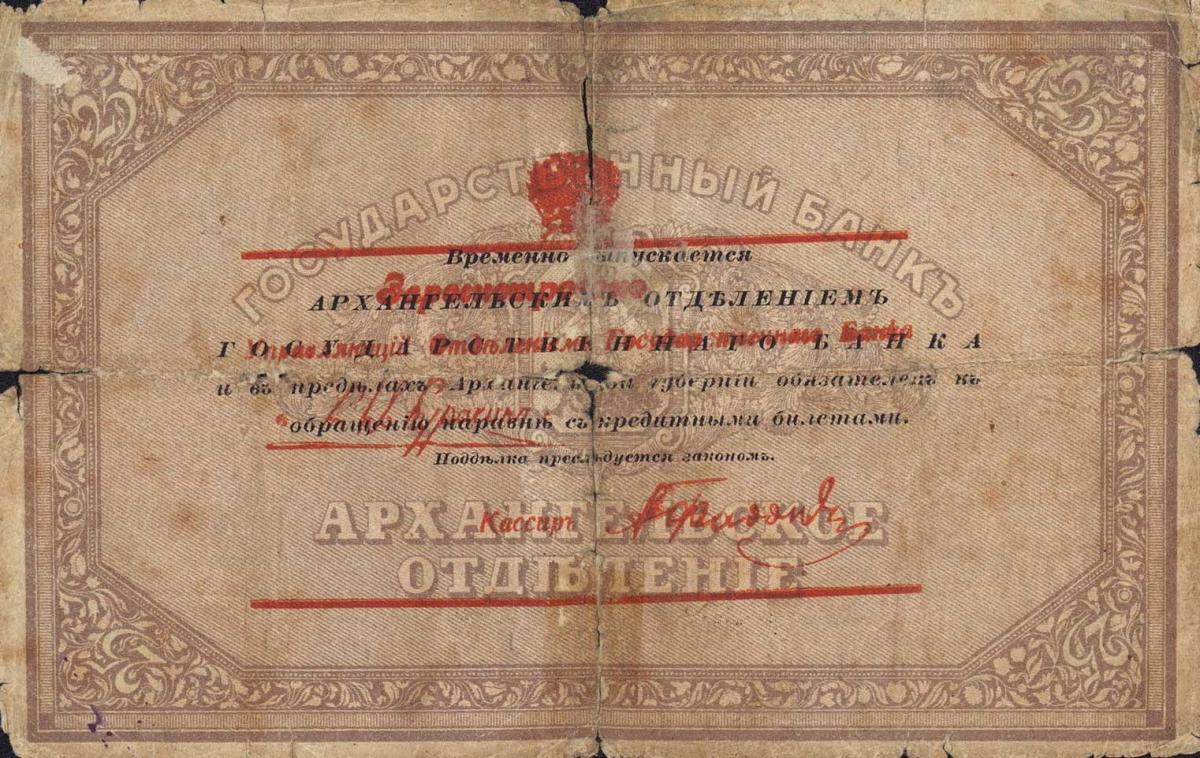 25 25
ГОСУДАРСТВЕННЫЙ БАНКЪ
Временно выпускается
Зарегистровано
АРХАНГЕЛЬСКИМЪ ОТДѢЛЕНІЕМЪ
Управляющій Отдѣленіемъ Государственнаго Банка
ГОСУДАРСТВЕННАГО БАНКА
и въ предѣлахъ Архангельской губерніи обязателенъ къ
обращенію наравнѣ съ кредитными билетами.
Поддѣлка преслѣдуется закономъ.
АРХАНГЕЛЬСКОЕ
Кассиръ
ОТДѢЛЕНІЕ
25 25